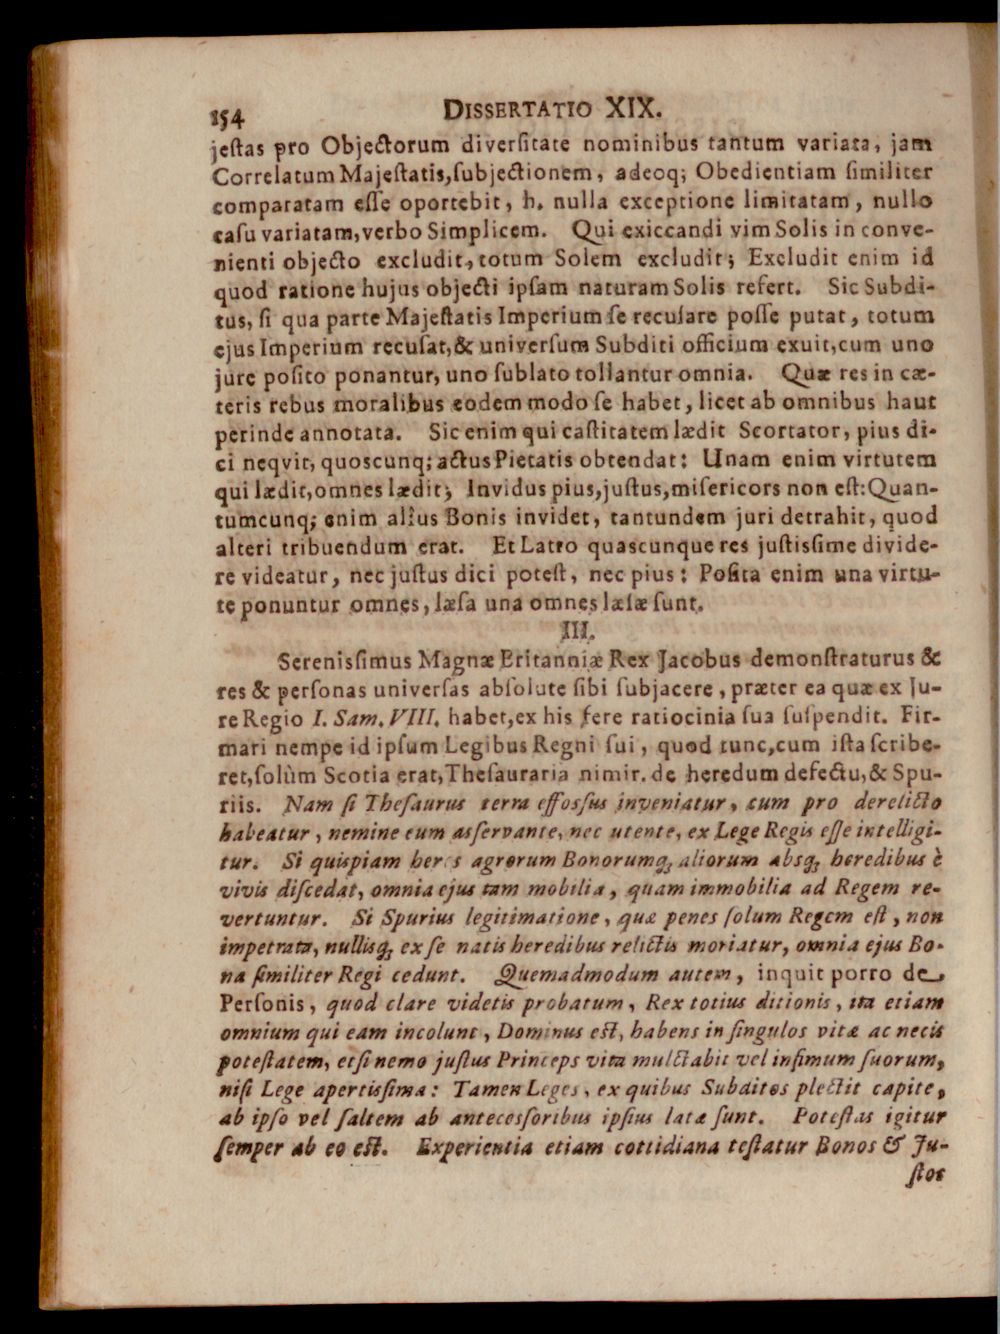 154 DISSERTATIO XIX.
jeſtas pro Objectorum diverſitate nominibus tantum variata, jam
Correlatum Majeſtatis, ſubjectionem, adeoq; Obedientiam ſimiliter
comparatam eſſe oportebit, h. nulla exceptione limitatam, nullo
caſu variatam, verbo Simplicem. Qui exiccandi vim Solis in conve-
nienti objecto excludit, totum Solem excludit; Excludit enim id
quod ratione hujus objecti ipſam naturam Solis refert. Sic Subdi-
tus, ſi qua parte Majeſtatis Imperium ſe recuſare poſſe putat, totum
ejus Imperium recuſat, & univerſum Subditi officium exuit, cum uno
jure poſito ponantur, uno ſublato tollantur omnia. Quæ res in cæ-
teris rebus moralibus eodem modo ſe habet, licet ab omnibus haut
perinde annotata. Sic enim qui caſtitatem lædit Scortator, pius di-
ci neqvit, quoscunq; actus Pietatis obtendat: Unam enim virtutem
qui lædit, omnes lædit; Invidus pius, juſtus, miſericors non eſt: Quan-
tumcunq; enim alius Bonis invidet, tantundem juri detrahit, quod
alteri tribuendum erat. Et Latro quascunque res juſtisſime divide-
re videatur, nec juſtus dici poteſt, nec pius: Poſita enim una virtu-
te ponuntur omnes, læſa una omnes læſæ ſunt.
III.
Serenisſimus Magnæ Britanniæ Rex Jacobus demonſtraturus &
res & perſonas univerſas abſolute ſibi ſubjacere, præter ea quæ ex Ju-
re Regio I. Sam. VIII. habet, ex his fere ratiocinia ſua ſuſpendit. Fir-
mari nempe id ipſum Legibus Regni ſui, quod tunc, cum iſta ſcribe-
ret, ſolùm Scotia erat, Theſauraria nimir. de heredum defectu, & Spu-
riis. Nam ſi Theſaurus terra effosſus inveniatur, cum pro derelicto
habeatur, nemine eum asſervante, nec utente, ex Lege Regis eſſe intelligi-
tur. Si quispiam heres agrorum Bonorumq; aliorum absq; heredibus è
vivis diſcedat, omnia ejus tam mobilia, quam immobilia ad Regem re-
vertuntur. Si Spurius legitimatione, quæ penes ſolum Regem eſt, non
impetrata, nullisq; ex ſe natis heredibus relictis moriatur, omnia ejus Bo-
na ſimiliter Regi cedunt. Quemadmodum autem, inquit porro de
Perſonis, quod clare videtis probatum, Rex totius ditionis, ita etiam
omnium qui eam incolunt, Dominus eſt, habens in ſingulos vitæ ac necis
poteſtatem, etſi nemo juſtus Princeps vita mulctabit vel infimum ſuorum,
niſi Lege apertisſima: Tamen Leges, ex quibus Subditos plectit capite,
ab ipſo vel ſaltem ab antecesſoribus ipſius latæ ſunt. Poteſtas igitur
ſemper ab eo eſt. Experientia etiam cottidiana teſtatur Bonos & Ju-
ſtos